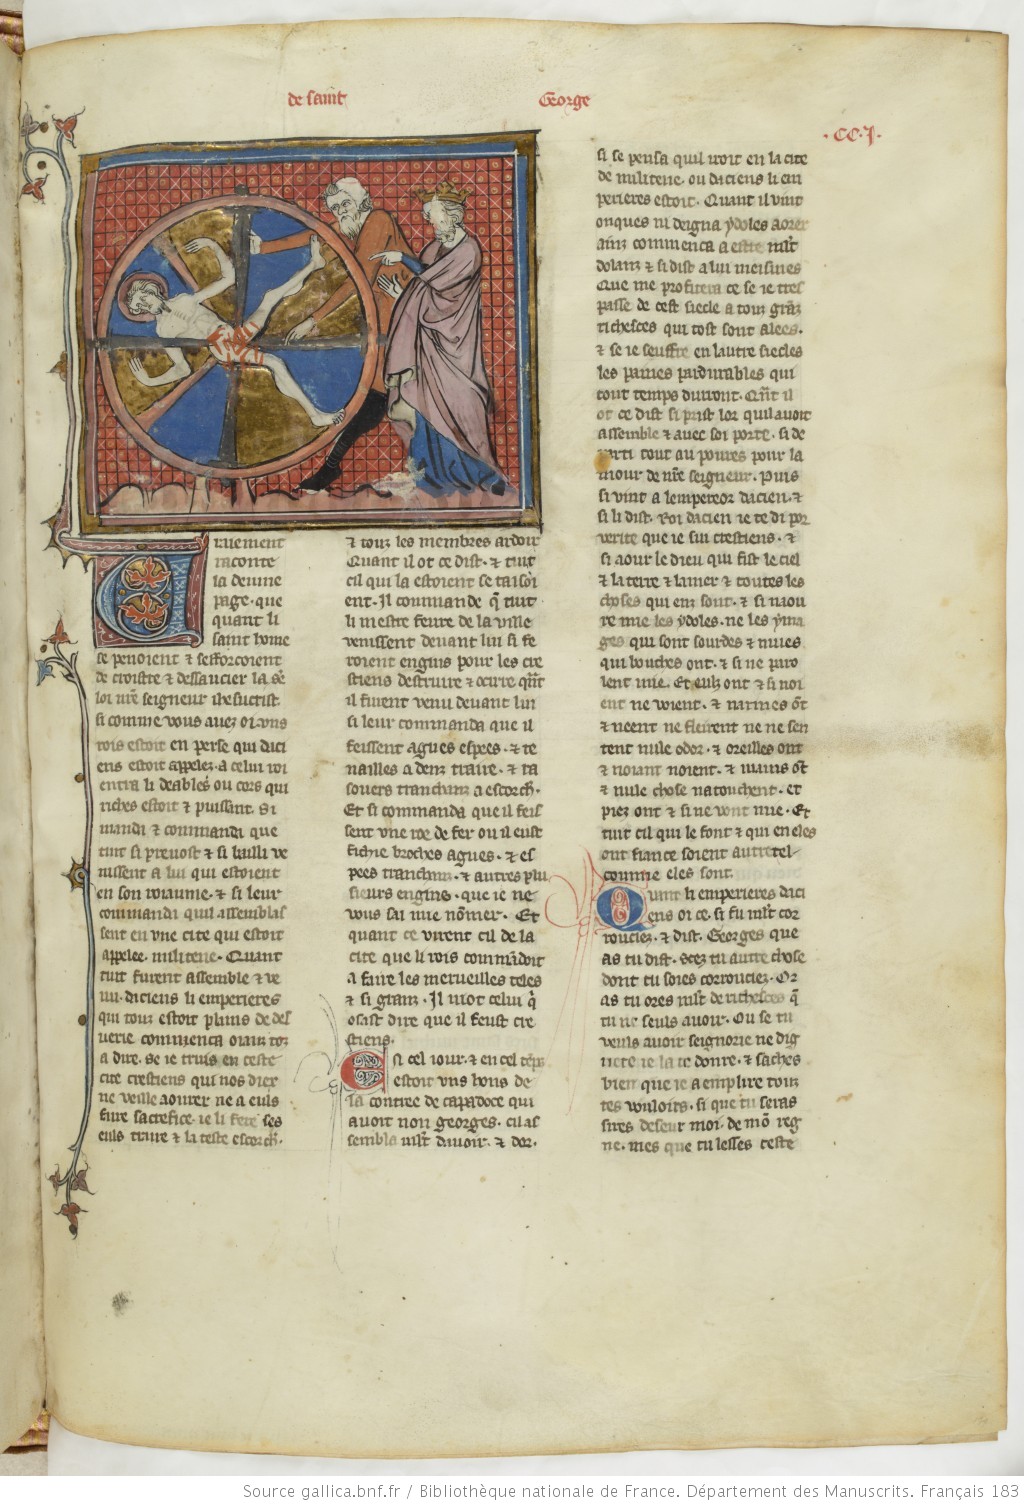 de saint George
.CC.J.
Uraiement
raconte
la deuine
page. que
quant li
saint home
se penoient ⁊ sefforcoient
de croistre ⁊ dessaucier la se
loi nr̄e seigneur ihesucrist
si comme vous auez oi. vns
rois estoit en perse qui daci
ens estoit appelez. a celui roi
entra li deables ou cors qui
riches estoit ⁊ puissant. Si
manda ⁊ commanda que
tuit si preuost ⁊ si bailli ve
nissent a lui qui estoient
en son roiaume. ⁊ si leur
commanda quil assemblas
sent en vne cite qui estoit
appelee. militene. Quant
tuit furent assemble ⁊ ve
nu. daciens li emperieres
qui touz estoit plains de des
uerie commenca oianz toz
a dire. Se ie truis en ceste
cite crestiens qui nos diex
ne veille aourer ne a euls
faire sacrefice. ie li feré ses
euls traire ⁊ la teste escorch̄.
⁊ touz les membres ardoir
Quant il ot ce dist. ⁊ tuit
cil qui la estoient se taisoi
ent. Il commande q̄ tuit
li mestre feure de la ville
venissent deuant lui si fe
roient engins pour les cre
stiens destruire ⁊ ocirre. qn̄t
il furent venu deuant lui
si leur commanda que il
feissent agues espees. ⁊ te
nailles a denz traire. ⁊ ra
souers tranchanz a escorch̄.
Et si commanda que il feis
sent vne roe de fer ou il eust
fichie broches agues. ⁊ es
pees tranchanz. ⁊ autres plu
sieurs engins. que ie ne
vous sai mie nōmer. Et
quant ce virent cil de la
cite que li rois commādoit
a faire les merueilles teles
⁊ si granz. Il not celui q̄
osast dire que il feust cre
stiens.
En cel iour. ⁊ en cel tēps
estoit vns hons de
la contree de capadoce qui
auoit non georges. cil as
sembla ml̄t dauoir. ⁊ dor.
si se pensa quil iroit en la cite
de militene. ou daciens li em
perieres estoit. Quant il vint
onques ni deigna ydoles aorer
ainz commenca a estre ml̄t
dolanz ⁊ si dist a lui meismes
Que me profitera ce se ie tres
passe de cest siecle a touz granz
richesces qui tost sont alees.
⁊ se ie seuffre en lautre siecles
les painnes pardurables qui
tout temps durront. Qn̄t il
ot ce dist si prist lor quil auoit
assemble ⁊ auec soi porte. si de
parti tout au poures pour la
mour de nr̄e seigneur. Puis
si vint a lempereor dacien. ⁊
si li dist. Roi dacien ie te di por
verite que ie sui crestiens. ⁊
si aour le dieu qui fist le ciel
⁊ la terre ⁊ la mer ⁊ toutes les
choses qui enz sont. ⁊ si naou
re mie les ydoles. ne les yma
ges qui sont sourdes ⁊ mues
qui bouches ont. ⁊ si ne paro
lent mie. Et eulz ont ⁊ si noi
ent ne voient. ⁊ narines ōt
⁊ neent ne fleirent ne ne sen
tent nule odor. ⁊ oreilles ont
⁊ noiant noient. ⁊ mains ōt
⁊ nule chose natouchent. et
piez ont ⁊ si ne vont mie. Et
tuit cil qui le font ⁊ qui en eles
ont fiance soient autretel
comme eles sont.
Quant li emperieres daci
ens oi ce. si fu ml̄t cor
rouciez. ⁊ dist. Georges que
as tu dist. Scez tu autre chose
dont tu soies corrouciez. Or
as tu ores ml̄t de richesces q̄
tu ne seuls auoir. Ou se tu
veuls auoir seignorie ne dig
nete ie la te donré. ⁊ saches
bien que ie a emplire touz
tes vouloirs. si que tu seras
sires deseur moi. de mō reg
ne. mes que tu lesses ceste
Source gallica.bnf.fr / Bibliothèque nationale de France. Département des Manuscrits. Français 183